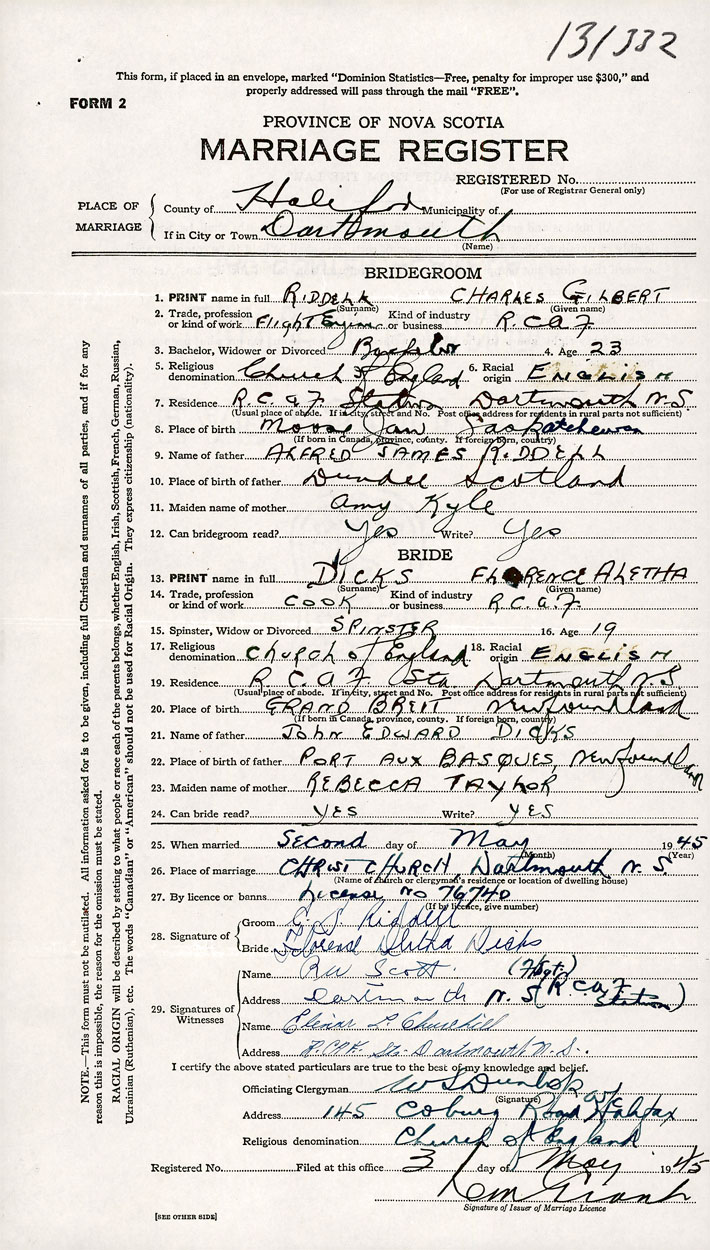 131332
This form, if placed in an envelope, marked "Dominion Statistics—Free, penalty for improper use $300," and
properly addressed will pass through the mail "FREE".
FORM 2
PROVINCE OF NOVA SCOTIA
MARRIAGE REGISTER
REGISTERED No.
(For use of Registrar General only)
PLACE OF MARRIAGE
County of Halifax Municipality of
If in City or Town Dartmouth
(Name)
BRIDEGROOM
1. PRINT name in full RIDDELL CHARLES GILBERT
(Surname) (Given name)
2. Trade, profession or kind of work Flight Engin. Kind of industry or business R.C.A.F.
3. Bachelor, Widower or Divorced Bachelor 4. Age 23
5. Religious denomination Church of England 6. Racial origin ENGLISH
7. Residence R.C.A.F. Station Dartmouth N.S.
(Usual place of abode. If in city, street and No. Post office address for residents in rural parts not sufficient)
8. Place of birth Moose Jaw Saskatchewan
(If born in Canada, province, county. If foreign born, country)
9. Name of father ALFRED JAMES RIDDELL
10. Place of birth of father Dundee Scotland
11. Maiden name of mother Amy Kyle
12. Can bridegroom read? Yes Write? Yes
BRIDE
13. PRINT name in full DICKS FLORENCE ALETHA
(Surname) (Given name)
14. Trade, profession or kind of work COOK Kind of industry or business R.C.A.F.
15. Spinster, Widow or Divorced SPINSTER 16. Age 19
17. Religious denomination Church of England 18. Racial origin ENGLISH
19. Residence R.C.A.F. Sta. Dartmouth N.S.
(Usual place of abode. If in city, street and No. Post office address for residents in rural parts not sufficient)
20. Place of birth GRAND BREIT Newfoundland
(If born in Canada, province, county. If foreign born, country)
21. Name of father JOHN EDWARD DICKS
22. Place of birth of father PORT AUX BASQUES, Newfoundland
23. Maiden name of mother REBECCA TAYLOR
24. Can bride read? YES Write? YES
25. When married Second day of May 1945
(Month) (Year)
26. Place of marriage CHRIST CHURCH, Dartmouth N.S.
(Name of church or clergyman's residence or location of dwelling house)
27. By licence or banns License No 76740
(If by licence, give number)
28. Signature of
Groom C. G. Riddell
Bride Florence Aletha Dicks
29. Signatures of Witnesses
Name Scott.
Address Dartmouth N.S. (R.C.A.F. Station)
Name L. Churchill
Address R.C.A.F. Sta. Dartmouth N.S.
I certify the above stated particulars are true to the best of my knowledge and belief.
Officiating Clergyman W S Dunlop
(Signature)
Address 145 Coburg Road Halifax
Religious denomination Church of England
Registered No. Filed at this office 3 day of May 1945
Grant
Signature of Issuer of Marriage Licence
[SEE OTHER SIDE]
NOTE.—This form must not be mutilated. All information asked for is to be given, including full Christian and surnames of all parties, and if for any
reason this is impossible, the reason for the omission must be stated.
RACIAL ORIGIN will be described by stating to what people or race each of the parents belongs, whether English, Irish, Scottish, French, German, Russian,
Ukrainian (Ruthenian), etc. The words "Canadian" or "American" should not be used for Racial Origin. They express citizenship (nationality).